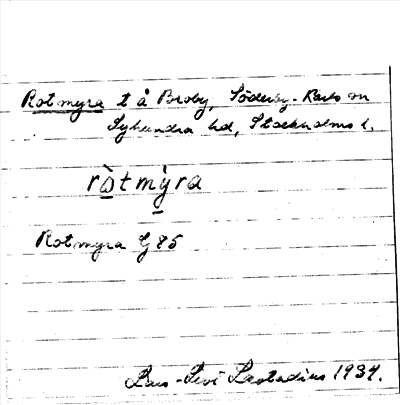 Rotmyra t å Broby, Söderby-Karls sn
Lyhundra hd, Stockholms l.
ròtmỳra
Rotmyra G 85
Lars-Levi Læstadius 1934.